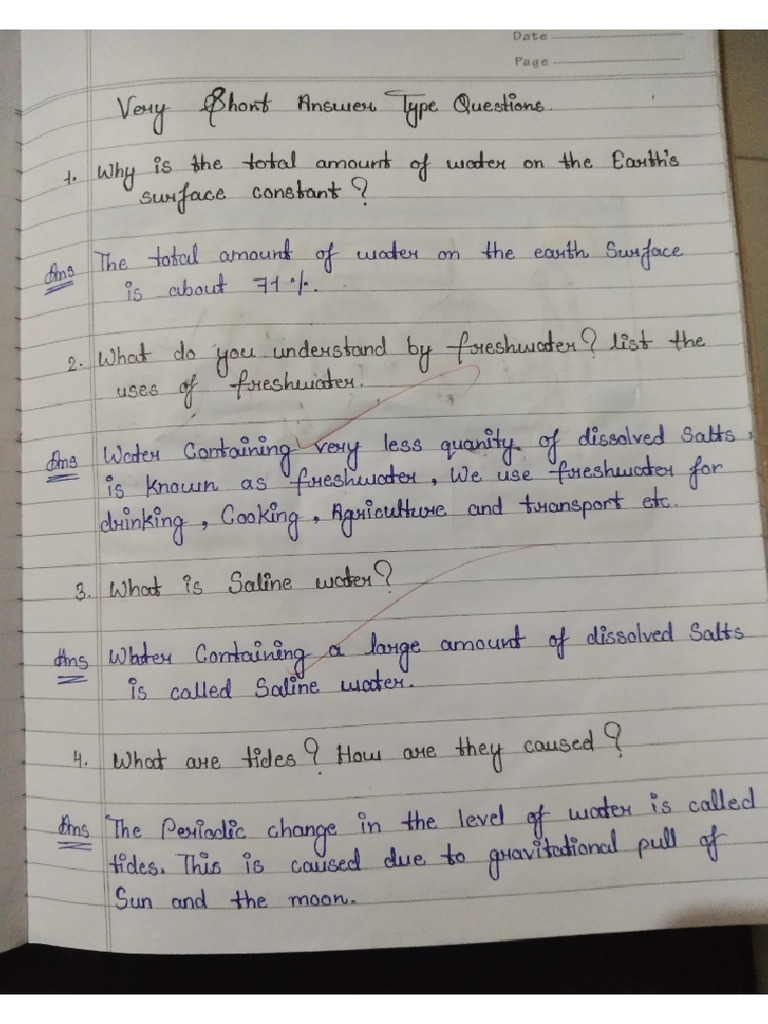 Date
Page
Very Short Answer Type Questions.
1. Why is the total amount of water on the Earth's
surface constant?
Ans The total amount of water on the earth Surface
is about 71%.
2. What do you understand by freshwater? list the
uses of freshwater.
Ans Water Containing very less quanity of dissolved Salts
is known as freshwater, We use freshwater for
drinking, Cooking, Agriculture and transport etc.
3. What is Saline water?
Ans Water Containing a large amount of dissolved Salts
is called Saline water.
4. What are tides? How are they caused?
Ans The Periodic change in the level of water is called
tides. This is caused due to gravitational pull of
Sun and the moon.